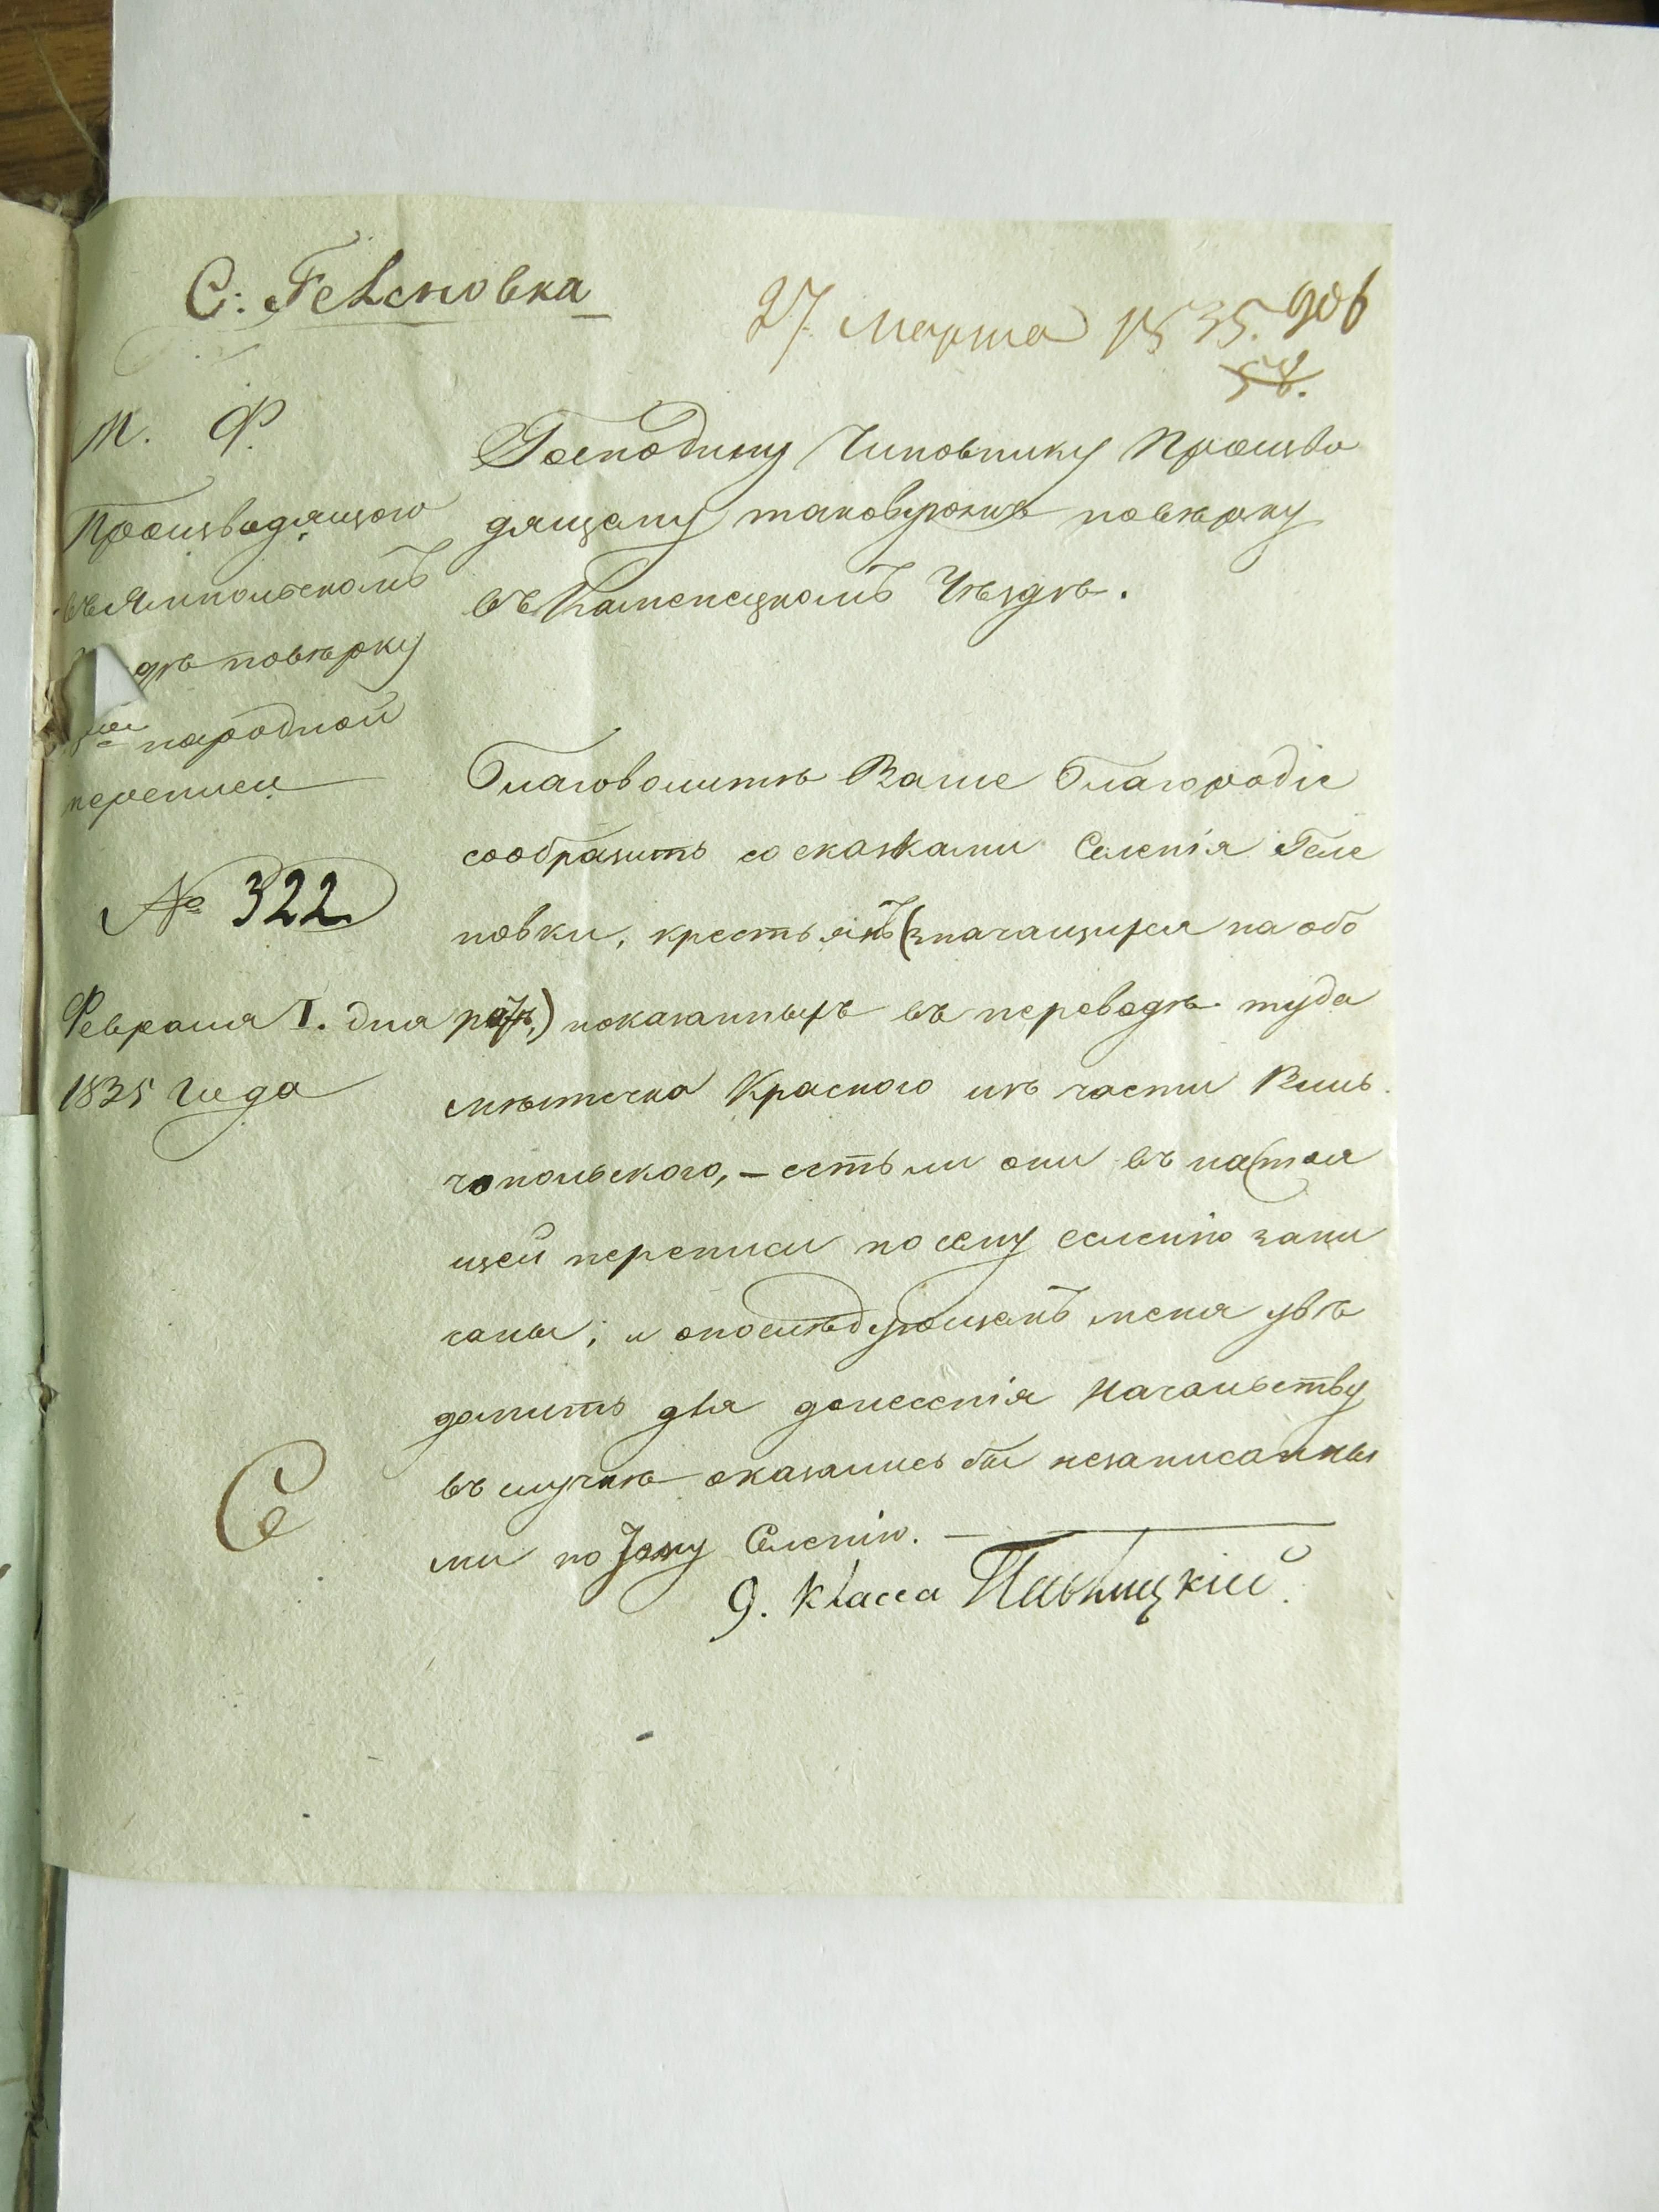 С: Геленовка
27. Марта 1835. 906
58.
М. Ф.
Производящого
въ Ямпольскомъ
здѣ повѣрку
народной
переписи
№ 322
Февраля 1. дня
1835 года
Господину Чиновнику Произво
дящему таковуюже повѣрку
въ Каменецкомъ Уѣздѣ.
Благоволитъ Ваше Благородіе
сообразить со сказками Селенія Геле
новки, крестьянъ (значащихся на обо
ротѣ,) показанныхъ въ переводѣ туда
мѣстечка Красного изъ части Виль
чопольского, – естьли они въ настоя
щей переписи по сему селенію запи
саны; и опослѣдующемъ меня увѣ
домить для донесенія Начальству
въ случаѣ оказались бы незаписанны
ми по тому Селенію. –
9. класса